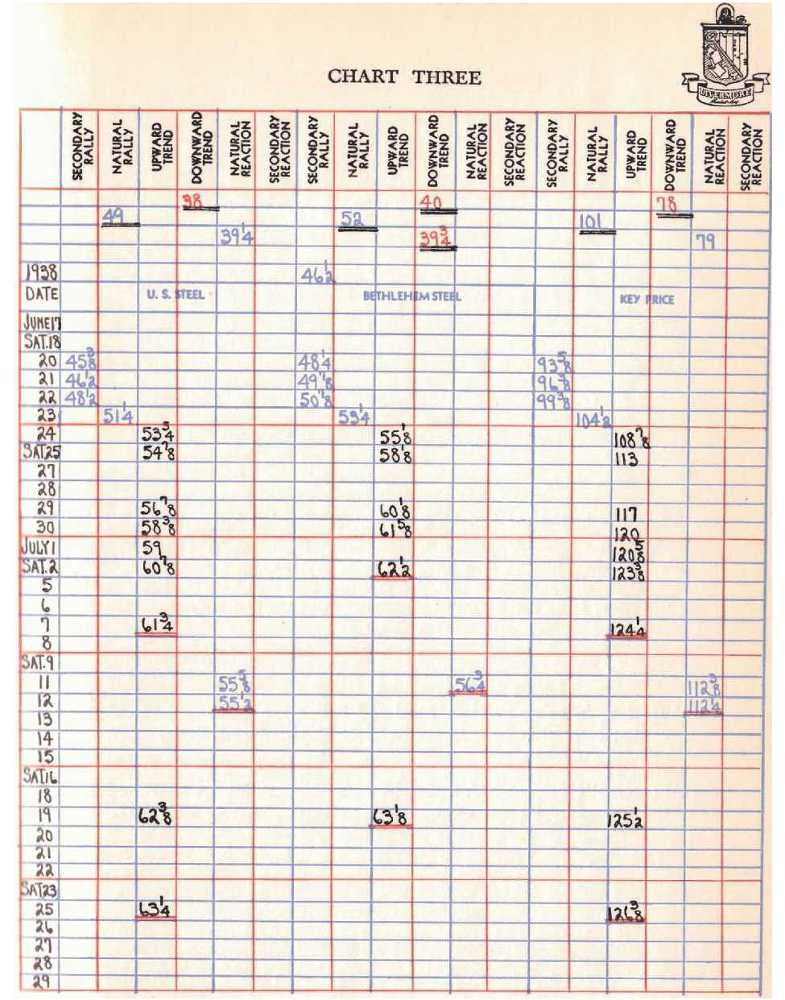 LIVERMORE
CHART THREE
SECONDARY RALLY NATURAL RALLY UPWARD TREND DOWNWARD TREND NATURAL REACTION SECONDARY REACTION SECONDARY RALLY NATURAL RALLY UPWARD TREND DOWNWARD TREND NATURAL REACTION SECONDARY REACTION SECONDARY RALLY NATURAL RALLY UPWARD TREND DOWNWARD TREND NATURAL REACTION SECONDARY REACTION
38 40 78
49 52 101
39 1/4 39 3/4 79
1938 46 1/2
DATE U. S. STEEL BETHLEHEM STEEL KEY PRICE
JUNE 17
SAT.18
20 45 3/8 48 1/4 93 5/8
21 46 1/2 49 7/8 96 3/8
22 48 1/2 50 7/8 99 3/8
23 51 1/4 53 1/4 104 1/2
24 53 3/4 55 1/8 108 7/8
SAT25 54 7/8 58 1/8 113
27
28
29 56 7/8 60 1/8 117
30 58 3/8 61 5/8 120
JULY 1 59 120 5/8
SAT.2 60 7/8 62 1/2 123 3/8
5
6
7 61 3/4 124 1/4
8
SAT.9
11 55 5/8 56 3/4 112 3/8
12 55 1/2 112 1/4
13
14
15
SAT16
18
19 62 3/8 63 1/8 125 1/2
20
21
22
SAT23
25 63 1/4 126 3/8
26
27
28
29